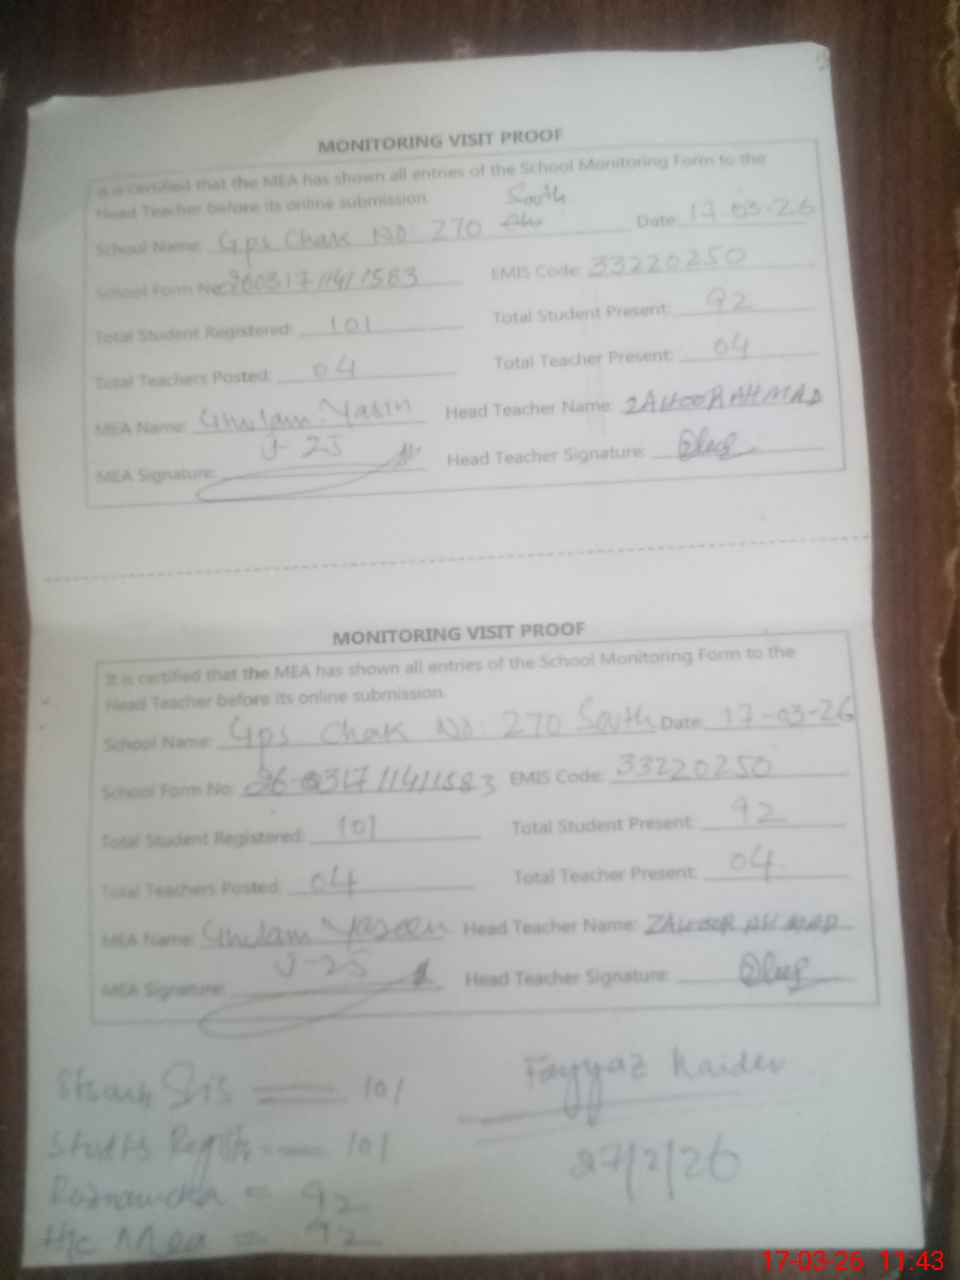 MONITORING VISIT PROOF
It is certified that the MEA has shown all entries of the School Monitoring Form to the
Head Teacher before its online submission.
South
School Name: Gps Chak No: 270 Date: 17-03-26
School Form No: 260317/141/1583 EMIS Code: 33220250
Total Student Registered: 101 Total Student Present: 92
Total Teachers Posted: 04 Total Teacher Present: 04
MEA Name: Ghulam Yasin Head Teacher Name: ZAHOOR AHMAD
J-25
MEA Signature: Head Teacher Signature:
MONITORING VISIT PROOF
It is certified that the MEA has shown all entries of the School Monitoring Form to the
Head Teacher before its online submission.
School Name: Gps Chak No: 270 South Date: 17-03-26
School Form No: 26-0317/141/1583 EMIS Code: 33220250
Total Student Registered: 101 Total Student Present: 92
Total Teachers Posted: 04 Total Teacher Present: 04
MEA Name: Ghulam Yaseen Head Teacher Name: ZAHOOR AHMAD
J-25
MEA Signature: Head Teacher Signature:
Fayyaz Haider
SIS 101
101
27/2/26
= 92
H/c Mea = 92
17-03-26 11:43